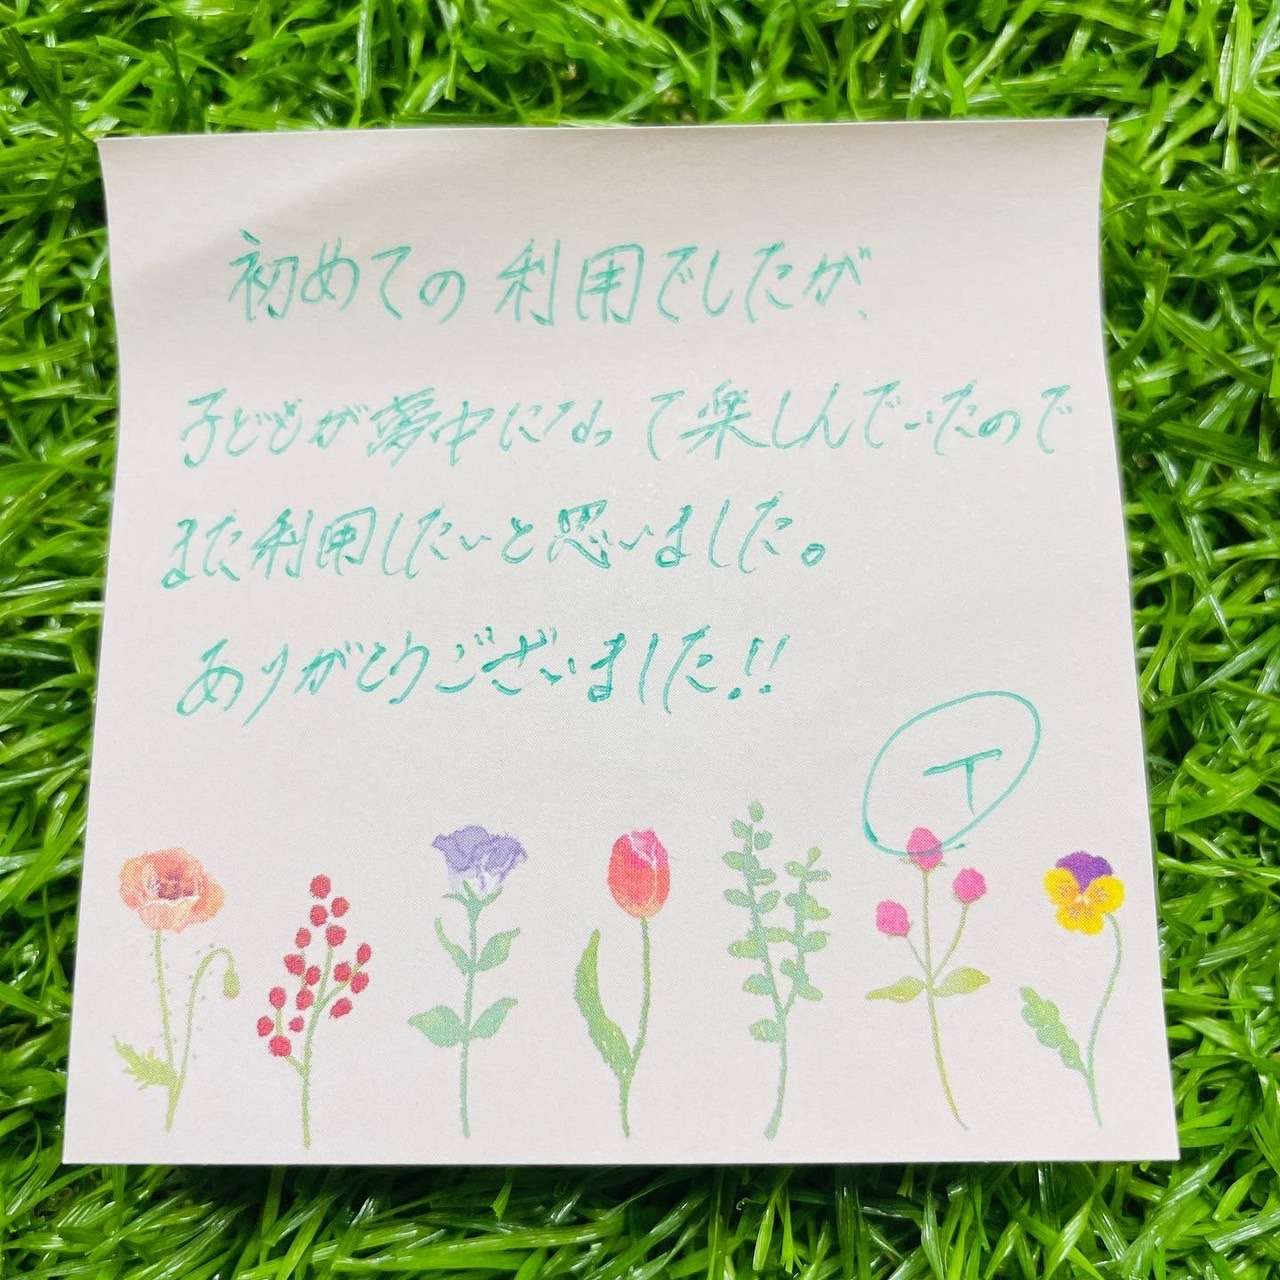 初めての利用でしたが、
子どもが夢中になって楽しんでいたので
また利用したいと思いました。
ありがとうございました!!
T